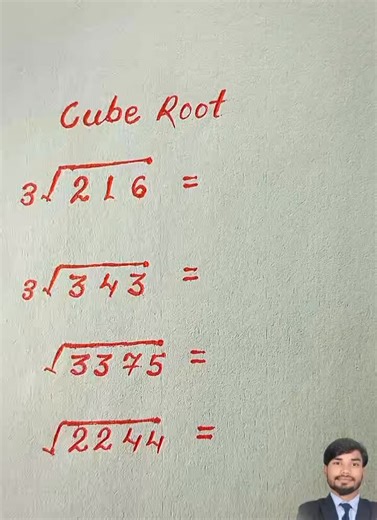 Cube Root
3√216 =
3√343 =
√3375 =
√2244 =